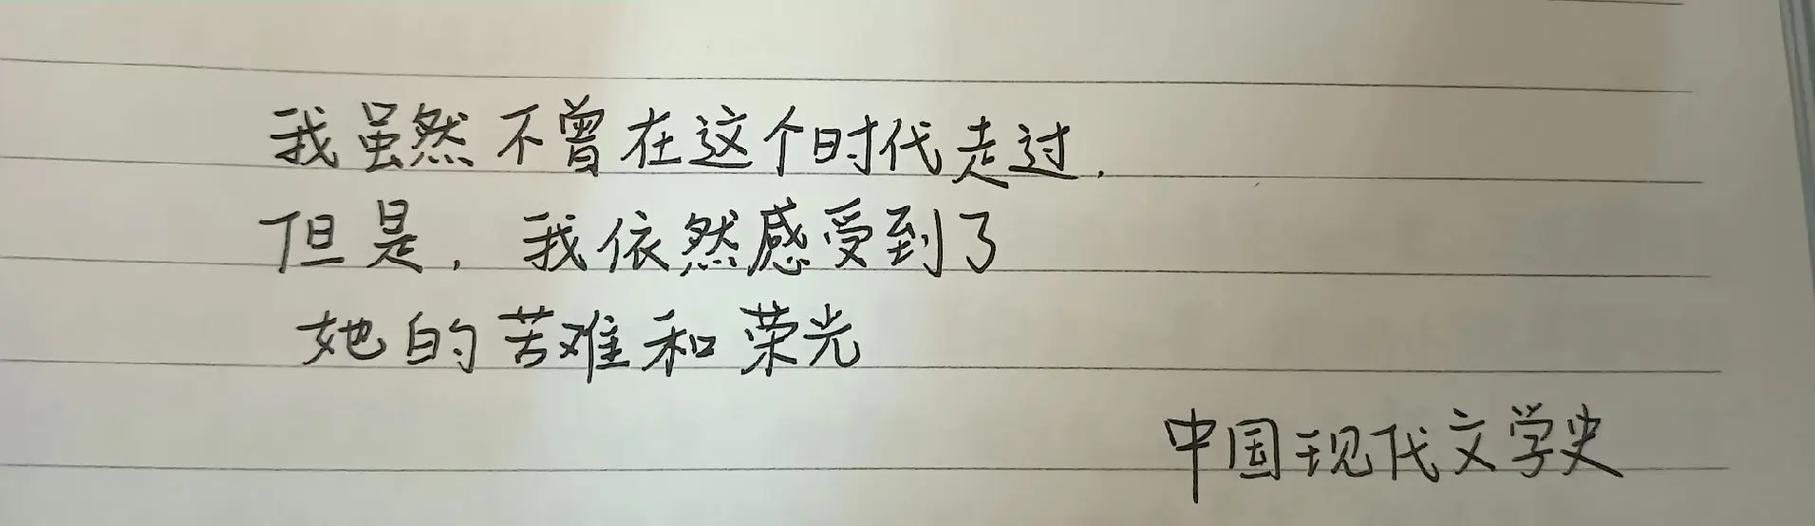 我虽然不曾在这个时代走过.
但是, 我依然感受到了
她的苦难和荣光
中国现代文学史